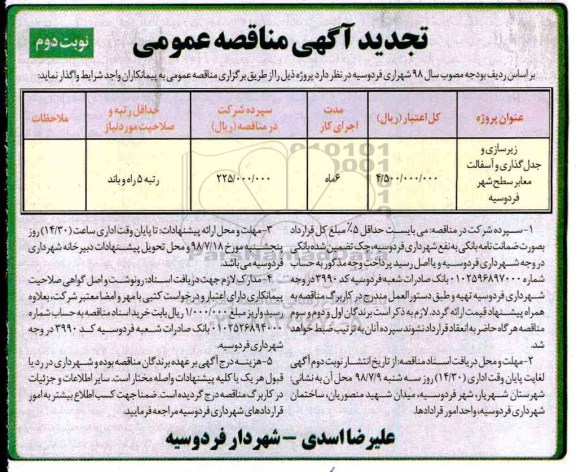 تجدید آگهی مناقصه عمومی
نوبت دوم
بر اساس ردیف بودجه مصوب سال ۹۸ شهرداری فردوسیه در نظر دارد پروژه ذیل را از طریق برگزاری مناقصه عمومی به پیمانکاران واجد شرایط واگذار نماید:
عنوان پروژه
کل اعتبار (ریال)
مدت اجرای کار
سپرده شرکت در مناقصه (ریال)
حداقل رتبه و صلاحیت مورد نیاز
ملاحظات
زیرسازی و
جدل گذاری و آسفالت
معابر سطح شهر
فردوسیه
۴/۵۰۰/۰۰۰/۰۰۰
۶ماه
۲۲۵/۰۰۰/۰۰۰
رتبه ۵ راه و باند
۱- سپرده شرکت در مناقصه: می بایست حداقل ۵٪ مبلغ کل قرارداد
بصورت ضمانت نامه بانکی به نفع شهرداری فردوسیه، چک تضمین شده بانکی
در وجه شهرداری فردوسیه و یا اصل رسید پرداخت وجه مذکور به حساب
شماره ۰۱۰۲۵۹۶۸۹۷۰۰۰ بانک صادرات شعبه فردوسیه کد ۳۹۹۰ در وجه
شهرداری فردوسیه تهیه و طبق دستورالعمل مندرج در کاربرگ مناقصه به
همراه پیشنهاد قیمت ارائه گردد. لازم به ذکر است برندگان اول و دوم و سوم
مناقصه هرگاه حاضر به انعقاد قرارداد نشوند سپرده آنان به ترتیب ضبط خواهد
شد.
۲- مهلت و محل دریافت اسناد مناقصه: از تاریخ انتشار نوبت دوم آگهی
لغایت پایان وقت اداری (۱۴/۳۰) روز سه شنبه ۹۸/۷/۹ محل آن به نشانی:
شهرستان شهریار، شهر فردوسیه، میدان شهید منصوریان، ساختمان
شهرداری فردوسیه، واحد امور قراردادها.
۳- مهلت و محل ارائه پیشنهادات: تا پایان وقت اداری ساعت (۱۴/۳۰) روز
پنجشنبه مورخ ۹۸/۷/۱۸ و محل تحویل پیشنهادات دبیرخانه شهرداری
فردوسیه می باشد.
۴- مدارک لازم جهت دریافت اسناد: رونوشت و اصل گواهی صلاحیت
پیمانکاری دارای اعتبار و درخواست کتبی با مهر و امضا معتبر شرکت، بعلاوه
رسید واریز مبلغ ۱/۰۰۰/۰۰۰ ریال بابت خرید اسناد مناقصه به حساب شماره
۰۱۰۲۵۲۶۸۹۴۰۰۰ بانک صادرات شعبه فردوسیه کد ۳۹۹۰ در وجه
شهرداری فردوسیه.
۵- هزینه درج آگهی بر عهده برندگان مناقصه بوده و شهرداری در رد یا
قبول هر یک یا کلیه پیشنهادات واصله مختار است. سایر اطلاعات و جزئیات
در کاربرگ مناقصه درج گردیده است. ضمنا جهت کسب اطلاع بیشتر به امور
قراردادهای شهرداری فردوسیه مراجعه فرمایید.
علیرضا اسدی – شهردار فردوسیه